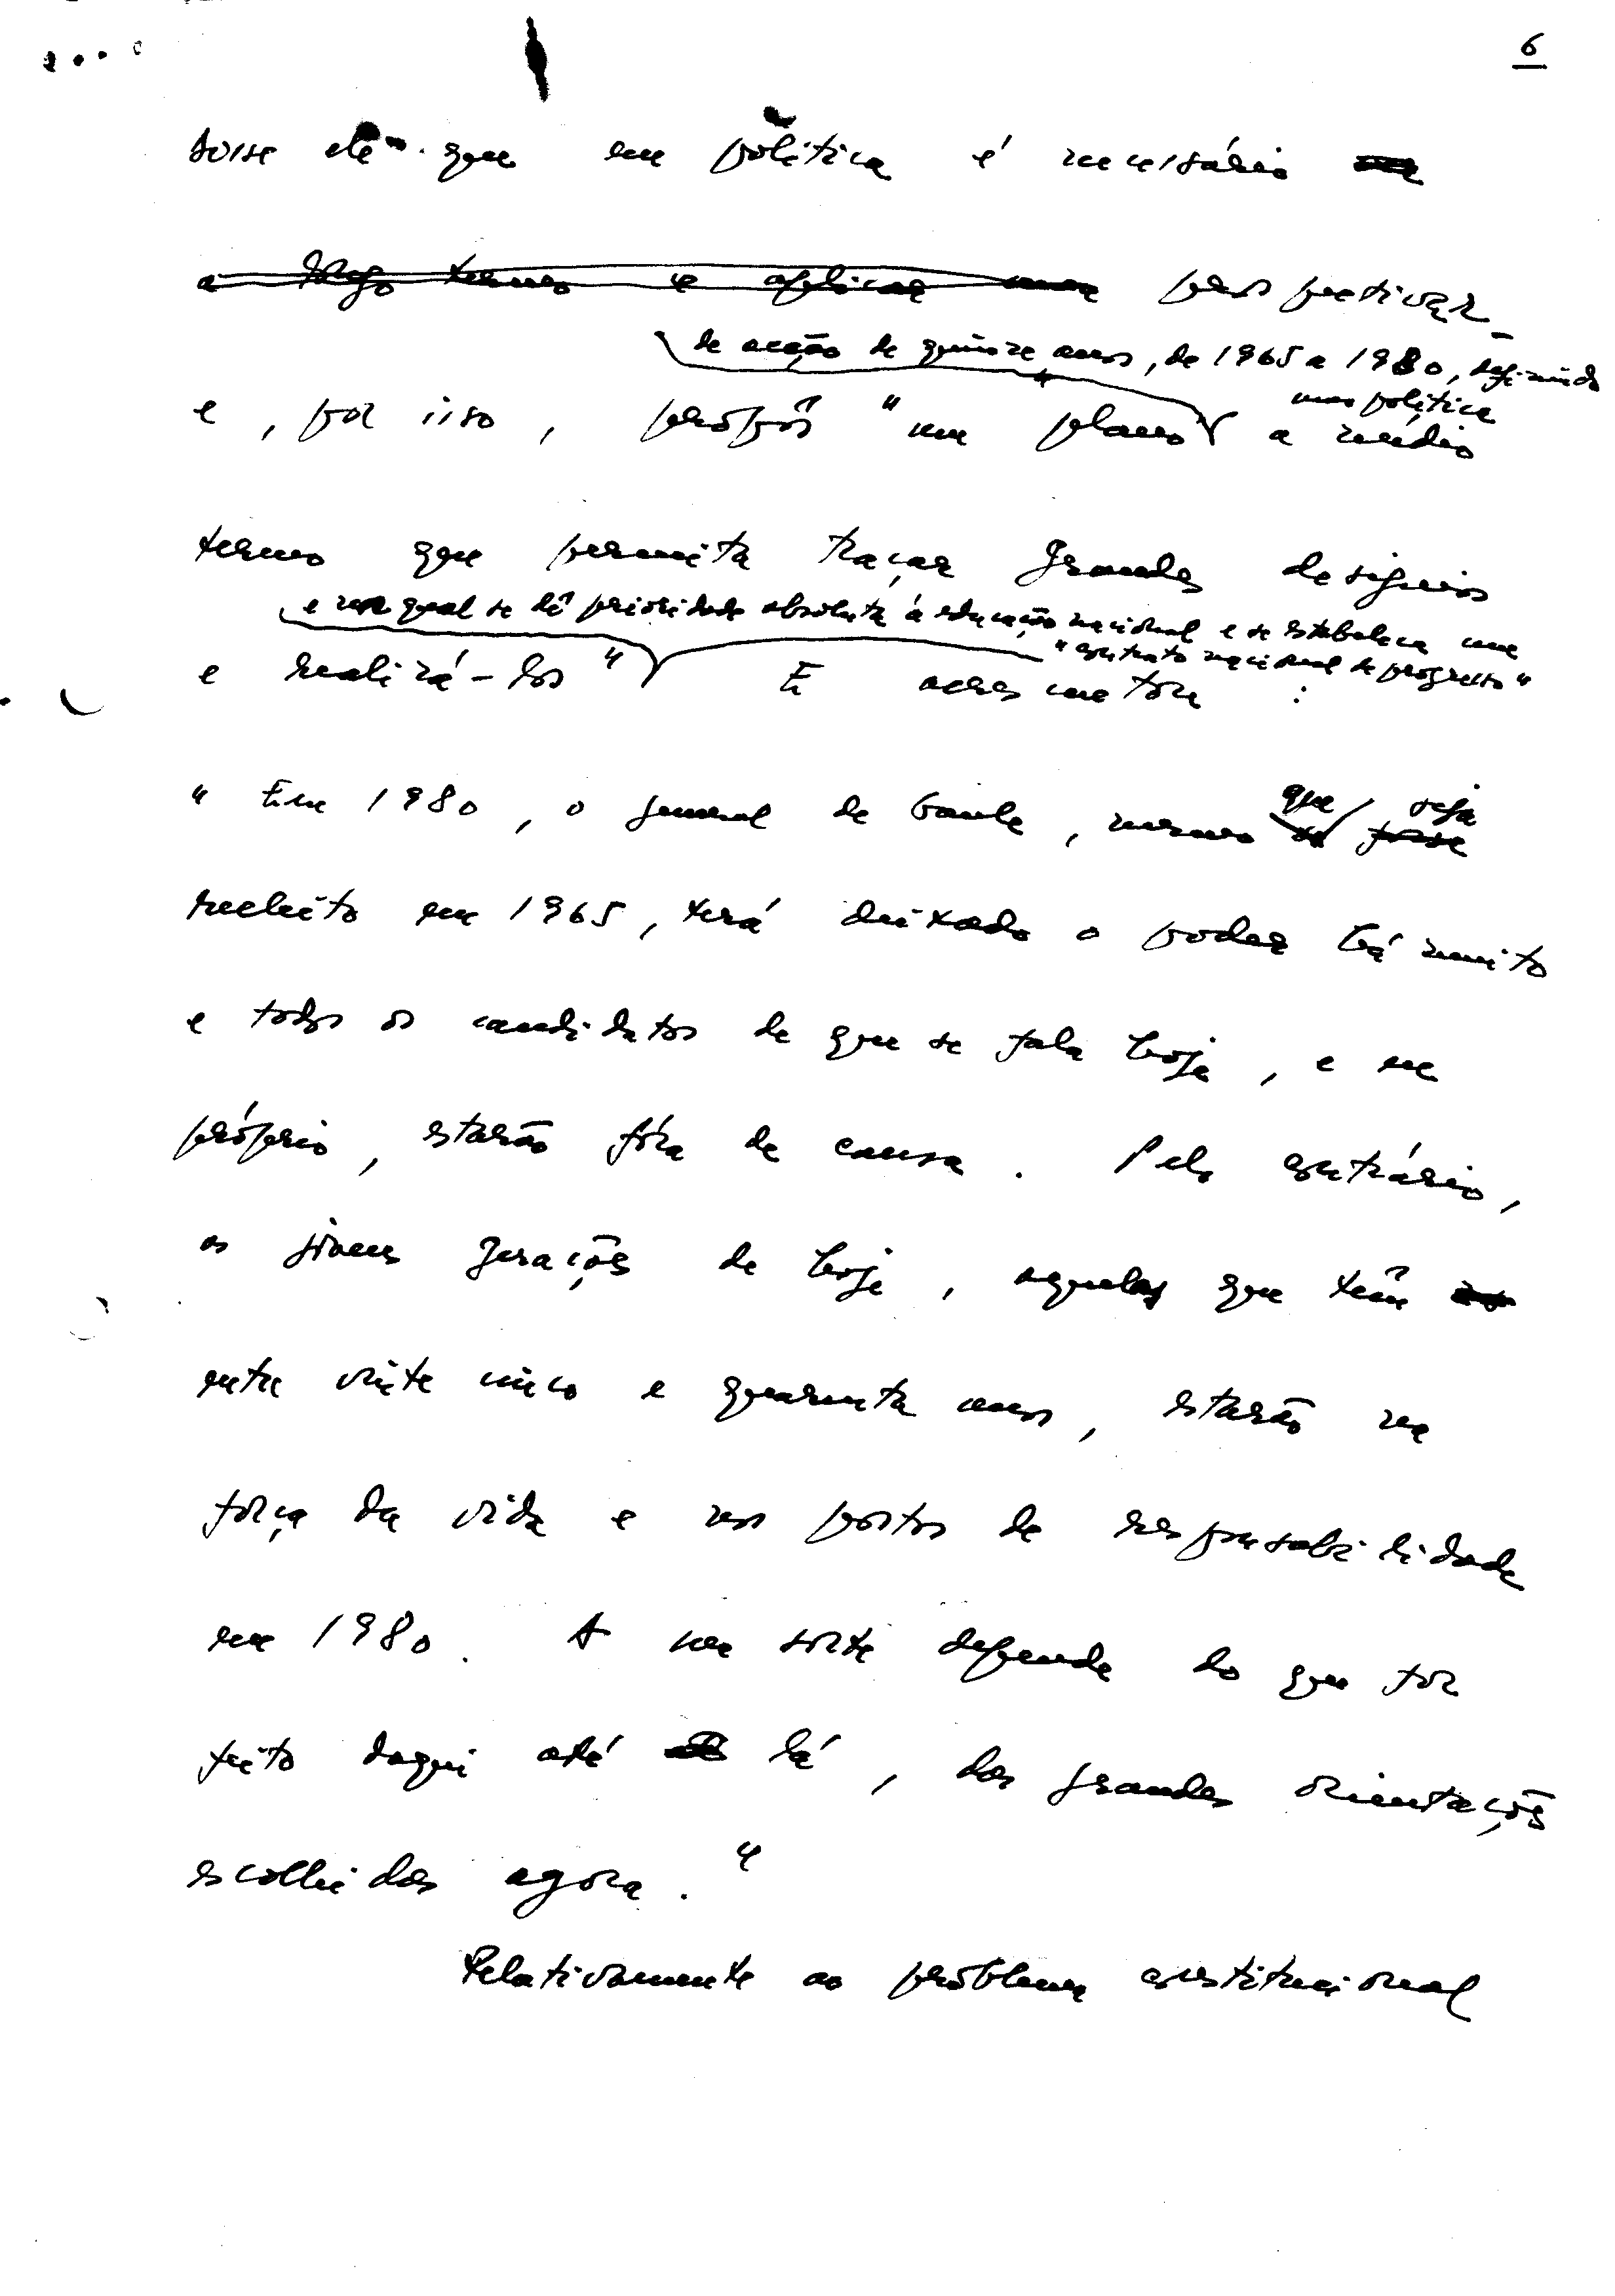 6
Disse ele que em política é necessário
a longo termo e aplicar uma perspectivar
de acção de quinze anos, de 1965 a 1980, definindo
uma política
e, por isso, propôs "um plano" a médio
termo que permita traçar grandes desígnios
e na qual se dê prioridade absoluta à educação nacional e se estabeleça um
"contrato nacional de progresso"
e realizá-los" E acrescentou :
que seja
"Em 1980, o general de Gaulle, mesmo se fosse
reeleito em 1965, terá deixado o poder há muito
e todos os candidatos de que se fala hoje, e eu
próprio, estarão fóra de causa. Pelo contrário,
as jovens gerações de hoje, aquelas que têm
entre vinte cinco e quarenta anos, estarão na
força da vida e nos postos de responsabilidade
em 1980. A sua sorte depende do que for
feito daqui até lá, das grandes orientações
escolhidas agora."
Relativamente ao problema constitucional